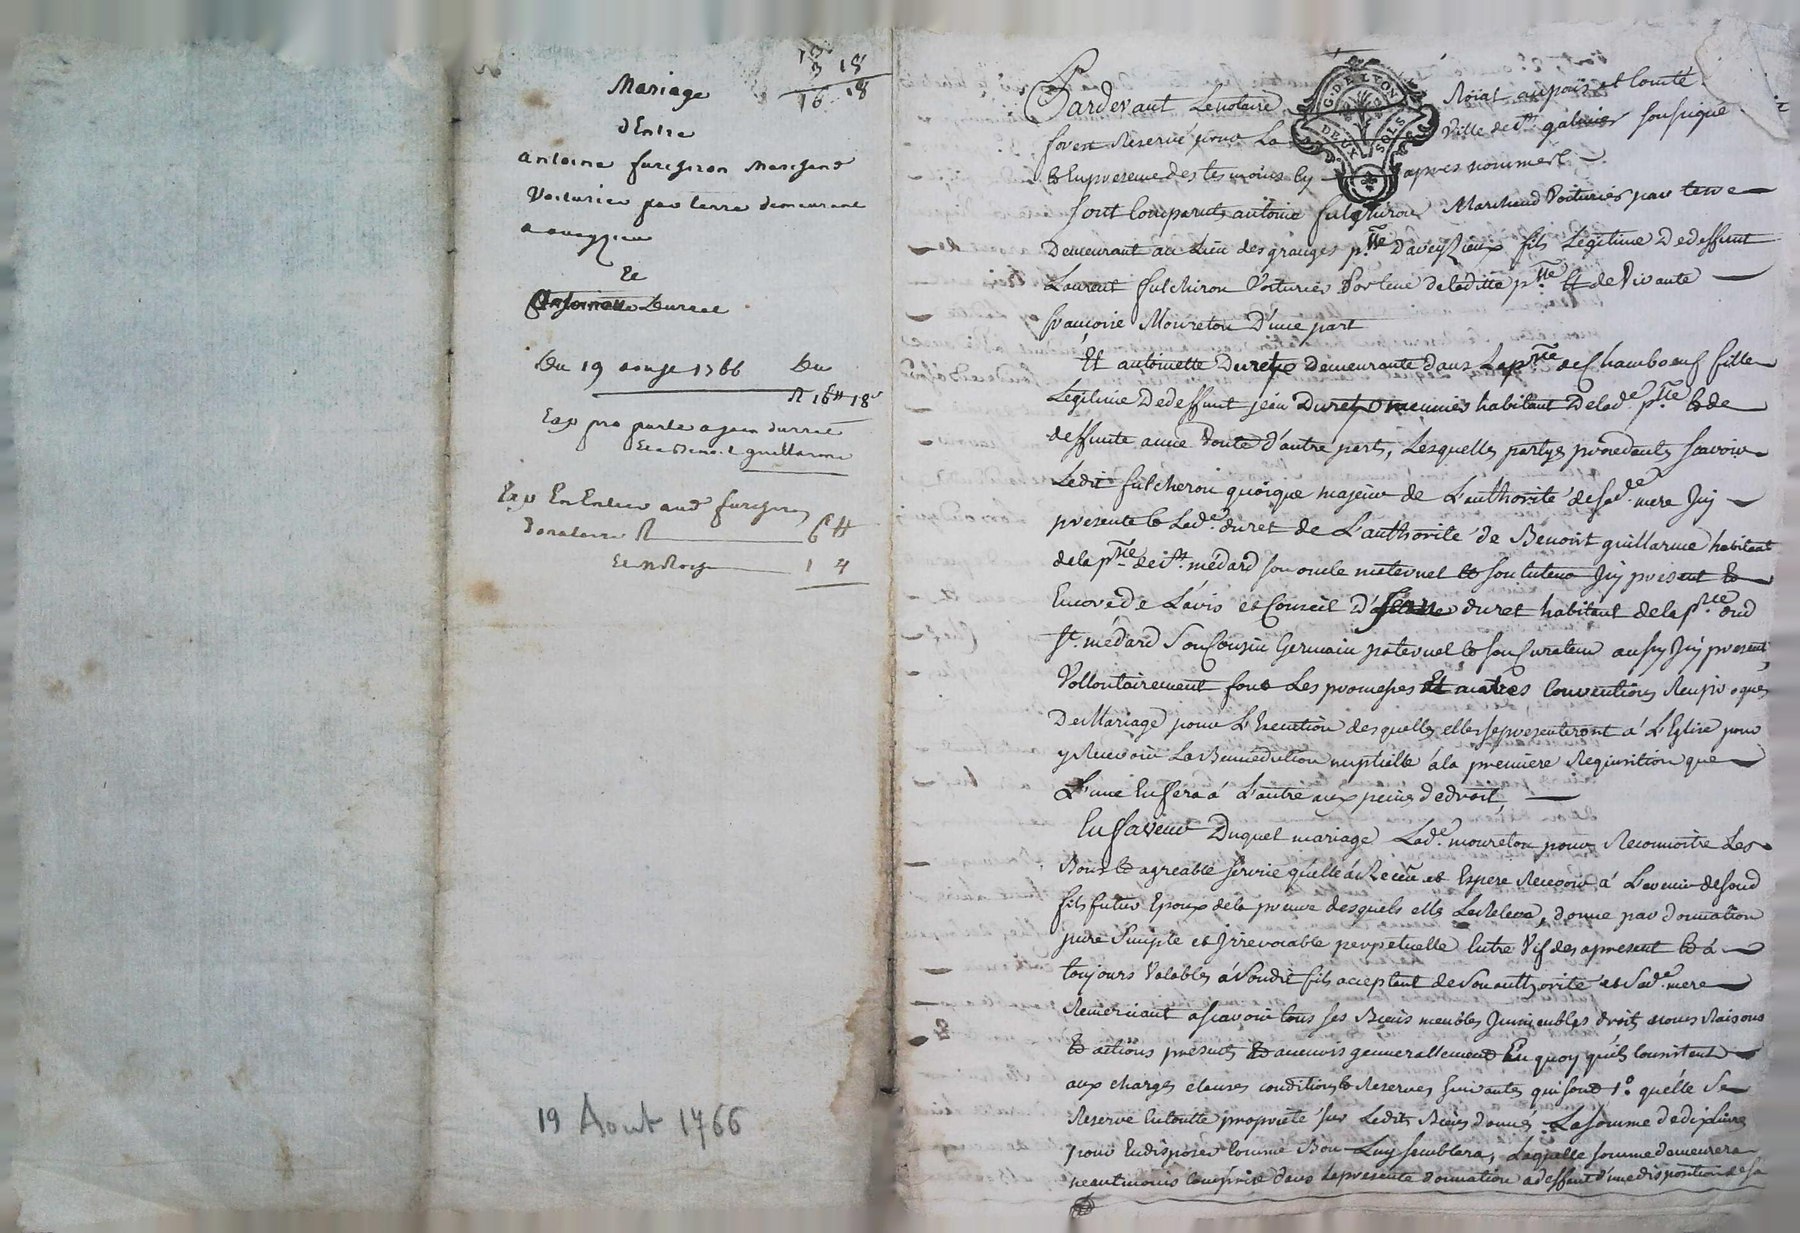 13
3 18
16 18
Mariage
d'Entre
antoine fulchiron Marchand
Voiturier par terre demeurant
a aveyzieu
Et
Antoinette Duret
Du 19 aoust 1766 Du
R 16# 18s
Exp pro parte a jean durret
Et a Benoit guillarme
Exp En Entier aud fulchiron
donataire R 6#
1 4
19 Aout 1766
G. DE LYON
DEUX SOLS
Pardevant Le notaire Roial au païs et Comté
forest Reservé pour La Ville de St galmier soussigné
& En presence des tesmoins cy apres nommés
sont Comparuts antoine fulchiron Marchand Voiturier par terre
Demeurant au Lieu des granges psse D'aveyzieux fils Legitime De deffunt
Laurent fulchiron Voiturier de laditte psse Et de Vivante
françoise Moureton D'une part
Et antoinette Duret Demeurante dans La psse de Chambœuf fille
Legitime De deffunt jean Duret habitant De lade psse & de
deffunte anne d'autre part, Lesquelles partyes procedants scavoir
Ledit fulcheron quoique majeur de L'authorité de sade mere Icy
presente & Lade duret de L'authorité de Benoit guillarme habitant
de la psse de st médard son oncle maternel & son tuteur Icy present &
Encore de L'avis et Conseil D' jean duret habitant de la psse dud
st médard son Cousin Germain paternel & son Curateur aussy Icy present,
Vollontairement font Les promesses Et autres Conventions Reciproques
De Mariage pour L'Execution desquelles elles se presenteront á L'Eglise pour
y Recevoir La Benediction nuptielle á la premiere Requisition que
L'une En fera á L'autre aux peines de droit
En faveur Duquel mariage Lade moureton pour Reconnoitre Les
Bons & agreable service qu'elle á Reçeu et Espere Recevoir á L'avenir de soud
fils futur Epoux de la preuve desquels elle Le Releve, donne par donnation
pure Simple et Irrevocable perpetuelle Entre Vif des apresent & á
toujours Valable, á Soudit fils acceptant de Son authorité et Sade mere
Remerciant ascavoir tous ses Biens meubles Immeubles droits noms Raisons
& actions presents & avenirs generallement En quoy qu'ils Consistent
aux charges clauses conditions & Reserves suivantes qui sont 1°. qu'elle Se
Reserve En toutte proprieté sur Ledits Biens donnés La somme de dix Livres
pour En disposer Comme Bon Luy semblera, Laquelle somme demeurera
neantmoins Comprise dans La presente donnation a deffaut d'une disposition de sa